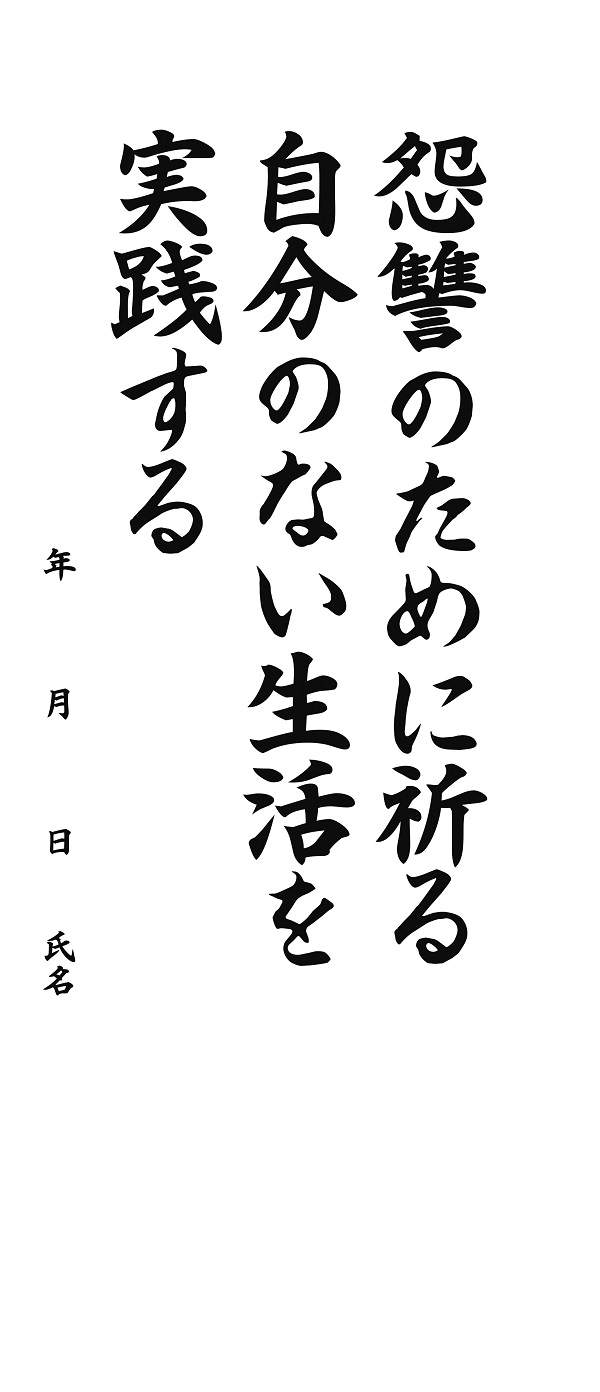 怨讐のために祈る
自分のない生活を
実践する
年 月 日 氏名